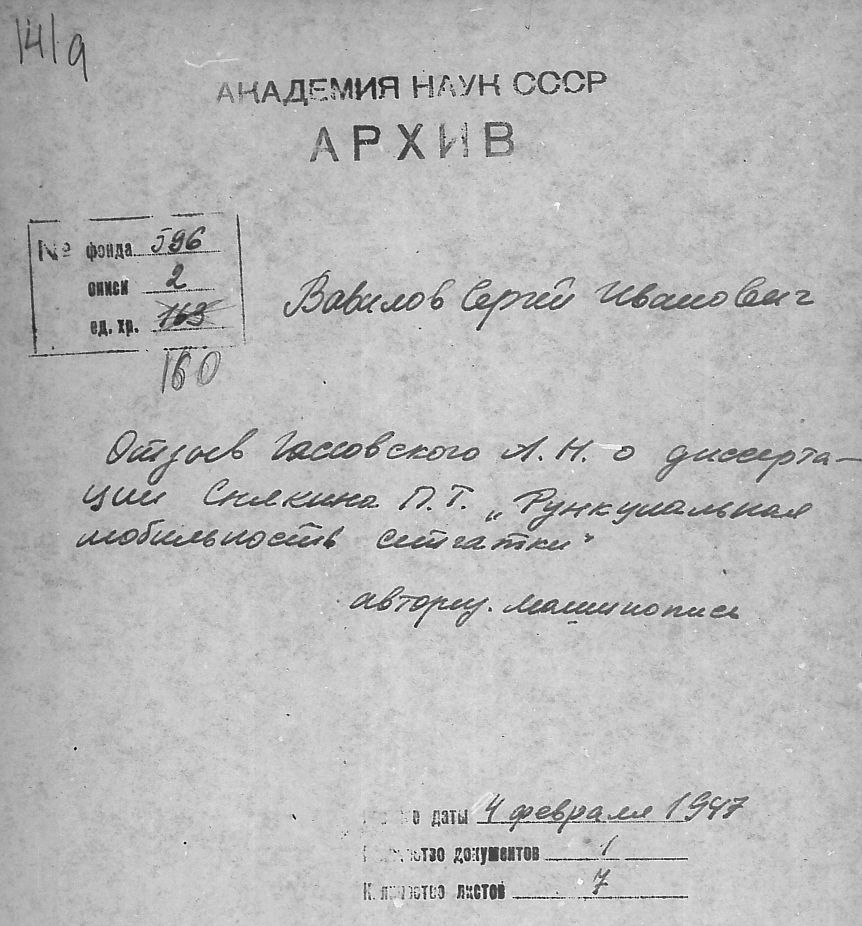 141а
АКАДЕМИЯ НАУК СССР
АРХИВ
№ фонда 596
описи 2
ед. хр. 163
160
Вавилов Сергей Иванович
Отзыв Гассовского Л. Н. о диссерта-
ции Снякина П. Г. „Функциональная
мобильность сетчатки"
авториз. машинопись
даты 4 февраля 1947
Количество документов 1
Количество листов 7